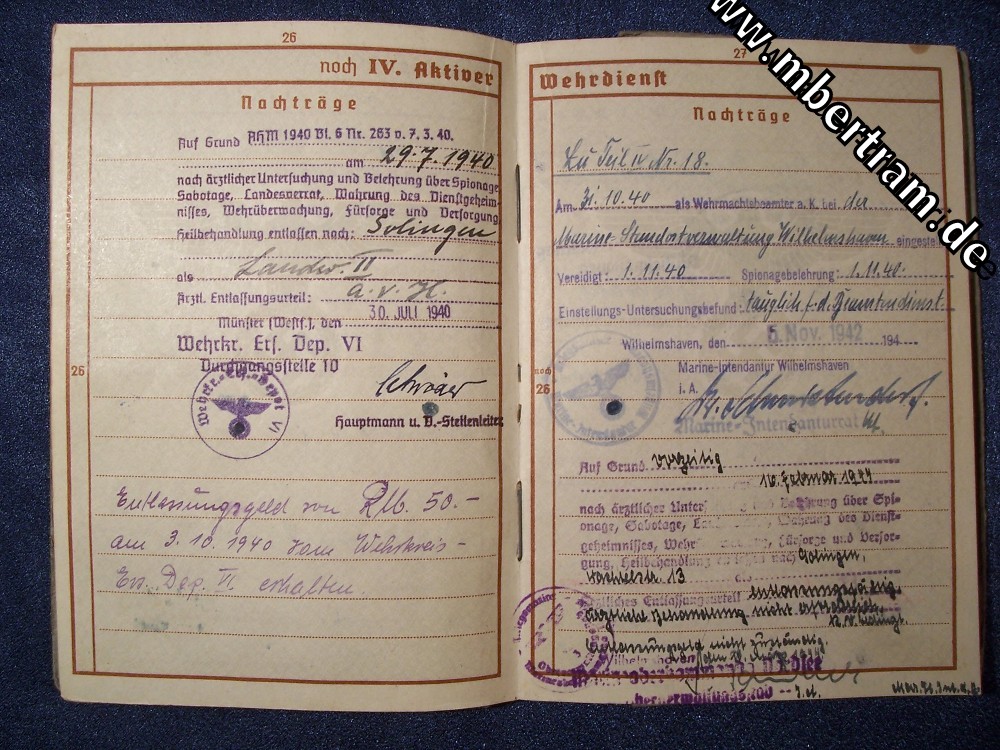 www.mbertram.de
26
noch IV. Aktiver
Nachträge
Auf Grund AHM 1940 Bl. 6 Nr. 263 v. 7. 3. 40.
am 29.7.1940
nach ärztlicher Untersuchung und Belehrung über Spionage
Sabotage, Landesverrat, Wahrung des Dienstgeheim-
nisses, Wehrüberwachung, Fürsorge und Versorgung
Heilbehandlung entlassen nach: Solingen
als Landw. II
Ärztl. Entlassungsurteil: a.v.H.
Münster (Westf.), den 30. JULI 1940
Wehrkr. Ers. Dep. VI
Durchgangsstelle 10
25
Wehrkr.-Ers.-Depot VI
Hauptmann u. D.-Stellenleiter
Entlassungsgeld von RM. 50.-
am 3.10.1940 vom Wehrkreis-
Ers. Dep. VI erhalten.
27
Wehrdienst
Nachträge
Zu Teil IV Nr. 18.
Am 31.10.40 als Wehrmachtsbeamter a. K. bei der
Marine-Standortverwaltung Wilhelmshaven eingestel
Vereidigt: 1.11.40 Spionagebelehrung: 1.11.40.
Einstellungs-Untersuchungsbefund: tauglich f. d. Beamtendienst
Wilhelmshaven, den 5. Nov. 1942 194
Marine-Intendantur Wilhelmshaven
noch
26
i. A.
Marine-Intendanturrat
Auf Grund vorzeitig
16. Februar 1944
nach ärztlicher Unters Belehrung über Spi-
onage, Sabotage, Lan Wahrung des Dienst-
geheimnisses, Wehr Fürsorge und Versor-
gung, Heilbehandlung nach Solingen,
13 als
ärztliches Entlassungsurteil entlassungsfähig
ärztliche Behandlung nicht
Entlassungsgeld nicht zuständig.
Wilhelmshaven